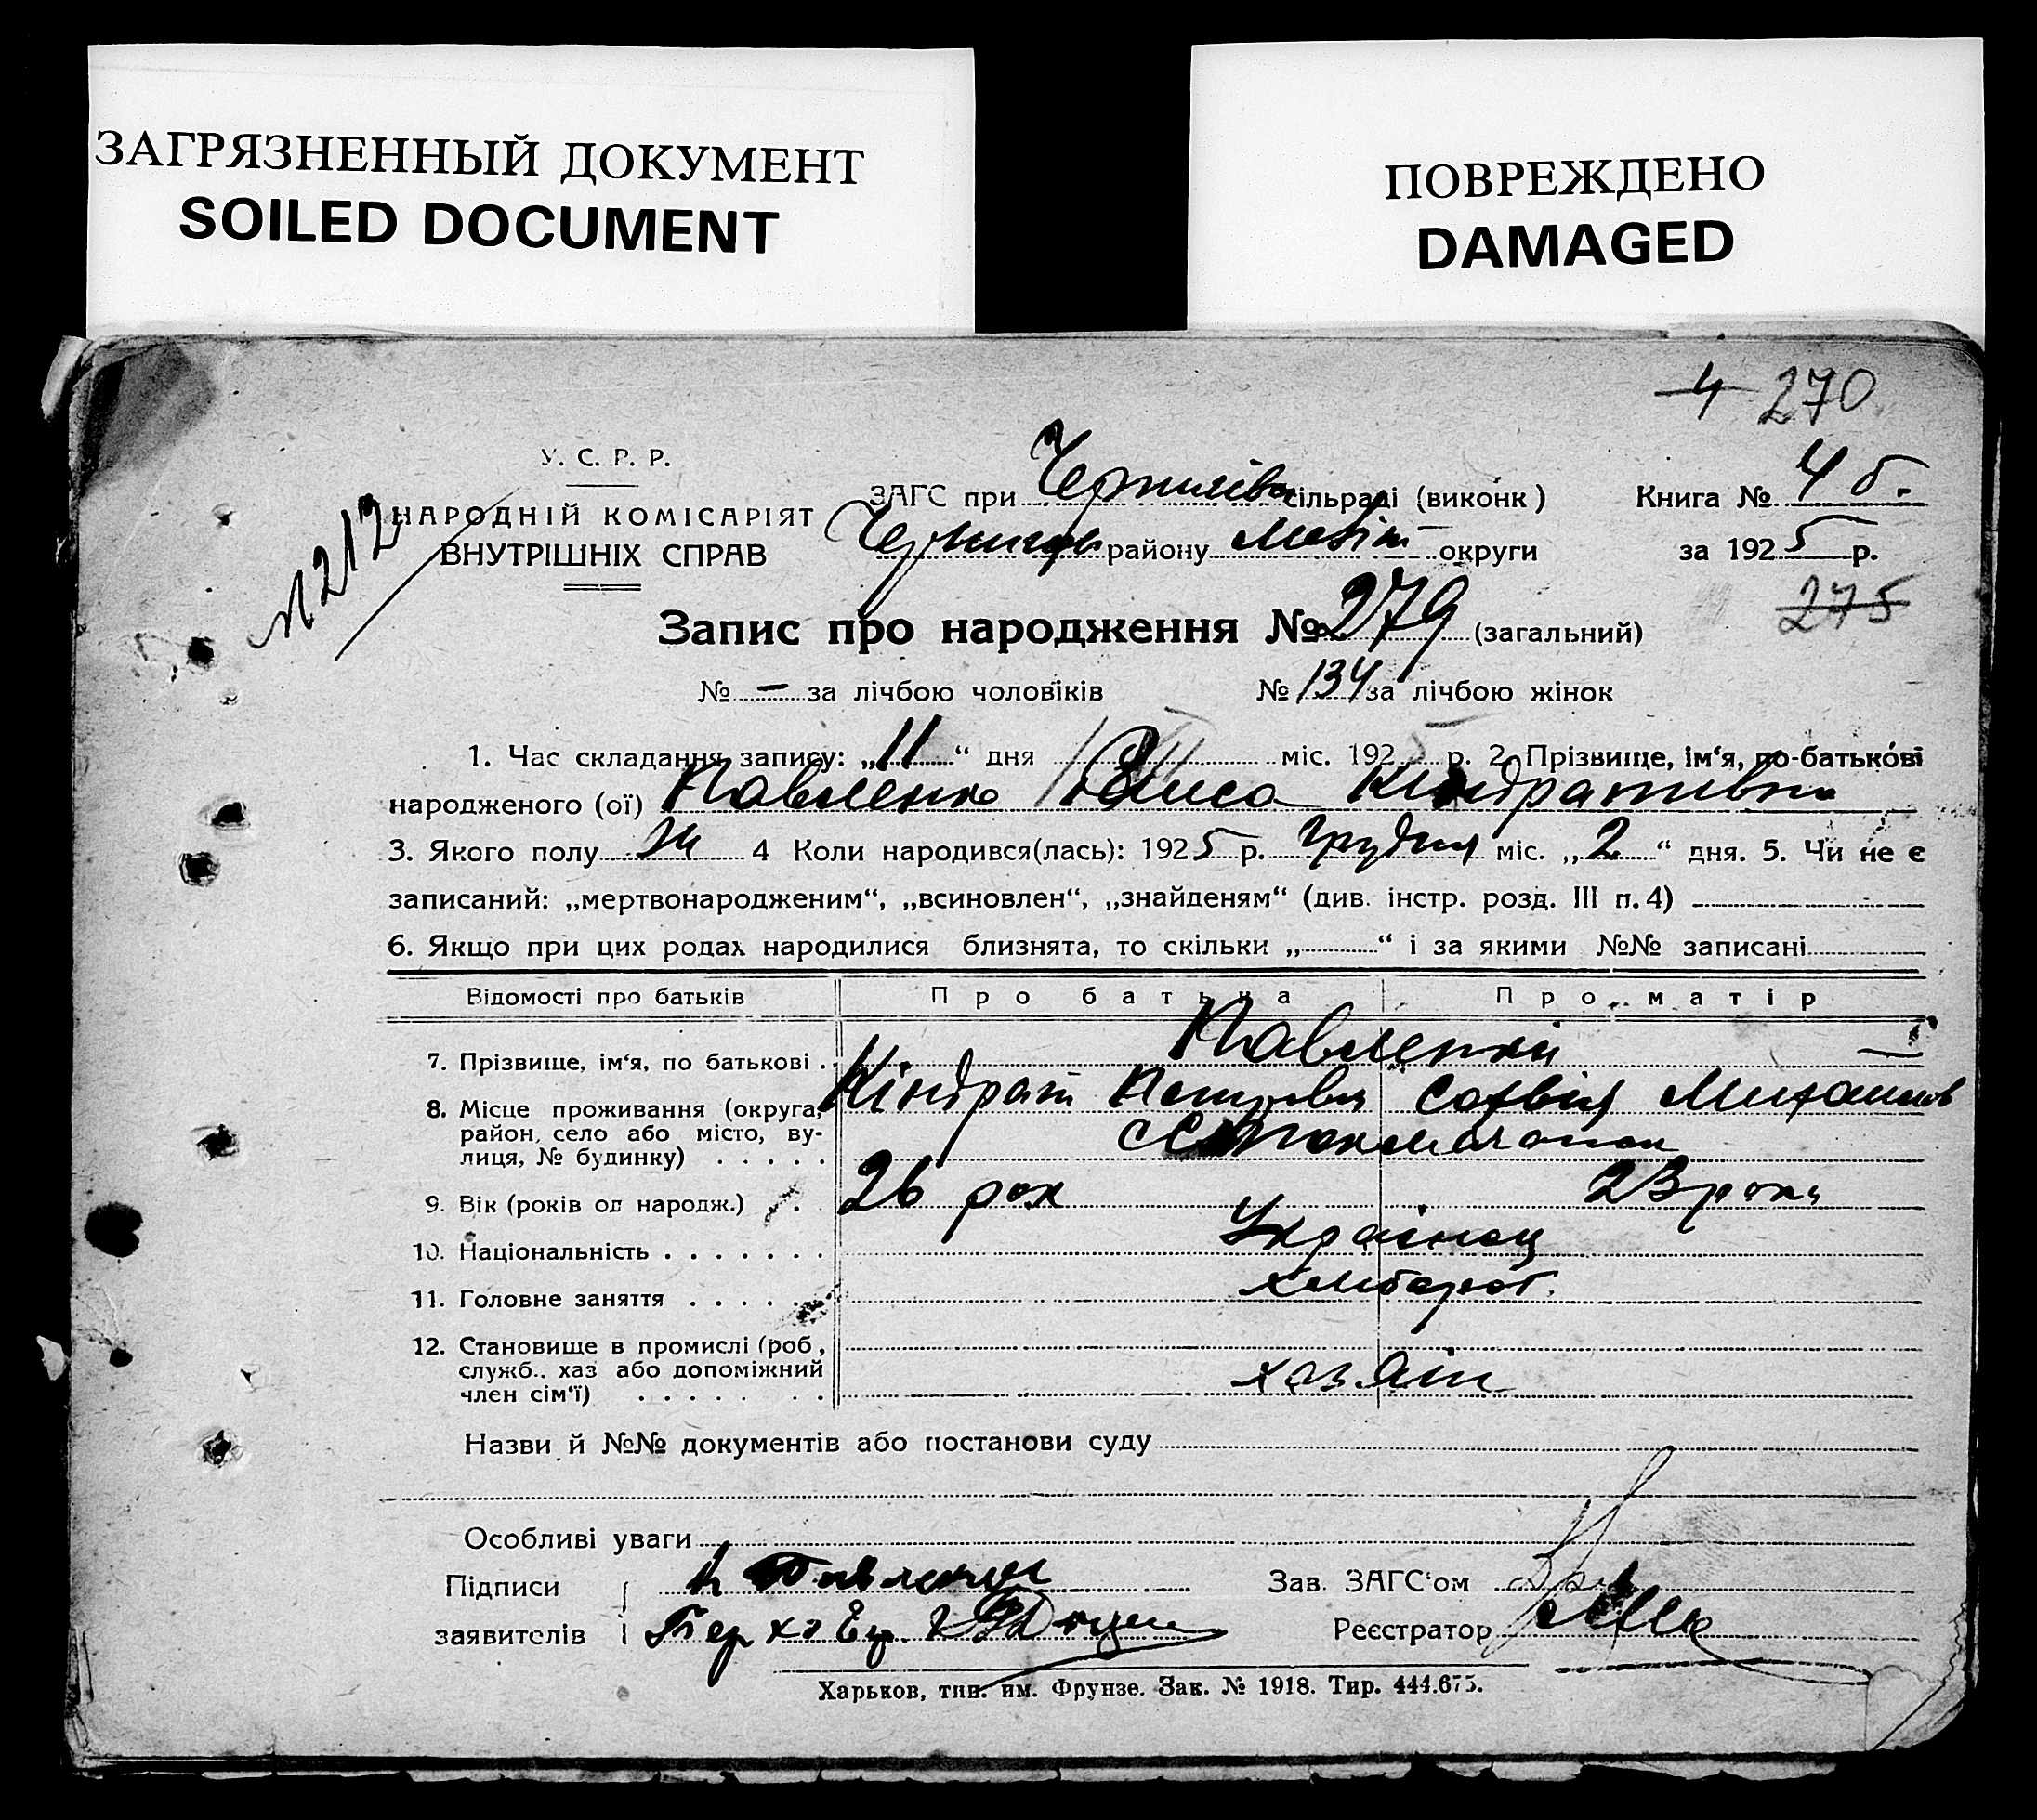 ЗАГРЯЗНЕННЫЙ ДОКУМЕНТ
SOILED DOCUMENT
ПОВРЕЖДЕНО
DAMAGED
4 270
У. С. Р. Р.
НАРОДНІЙ КОМІСАРІЯТ
ВНУТРІШНІХ СПРАВ
№212
ЗАГС при сільраді (виконк)
району округи
Книга № 4 б.
за 1925 р.
275
Запис про народження № 279 (загальний)
№ – за лічбою чоловіків № 134 за лічбою жінок
1. Час складання запису: „11“ дня міс. 1925 р. 2. Прізвище, ім‘я, по-батькові
народженого (ої) Павленко Кіндратівна
3. Якого полу ж 4 Коли народився(лась): 1925 р. грудня міс. „2“ дня. 5. Чи не є
записаний: „мертвонародженим“, „всиновлен“, „знайденям“ (див. інстр. розд. III п. 4)
6. Якщо при цих родах народилися близнята, то скільки „ “ і за якими №№ записані
Відомості про батьків Про батька Про матір
7. Прізвище, ім‘я, по батькові . Павленки
Кіндрат Петрович Софвія Михайлов
8. Місце проживання (округа, район, село або місто, ву-
лиця, № будинку) . . . . .
9. Вік (років од народж.) . . 26 рок 23 роки
10. Національність . . . . . . . Українец
11. Головне заняття . . . . . . хлибороб.
12. Становище в промислі (роб,
служб.. хаз або допоміжний
член сім‘ї) . . . . . . . хазяїн
Назви й №№ документів або постанови суду
Особливі уваги
Підписи К Павленко
заявителів
Зав. ЗАГС‘ом
Реєстратор
Харьков, тип. им. Фрунзе. Зак. № 1918. Тир. 444.675.